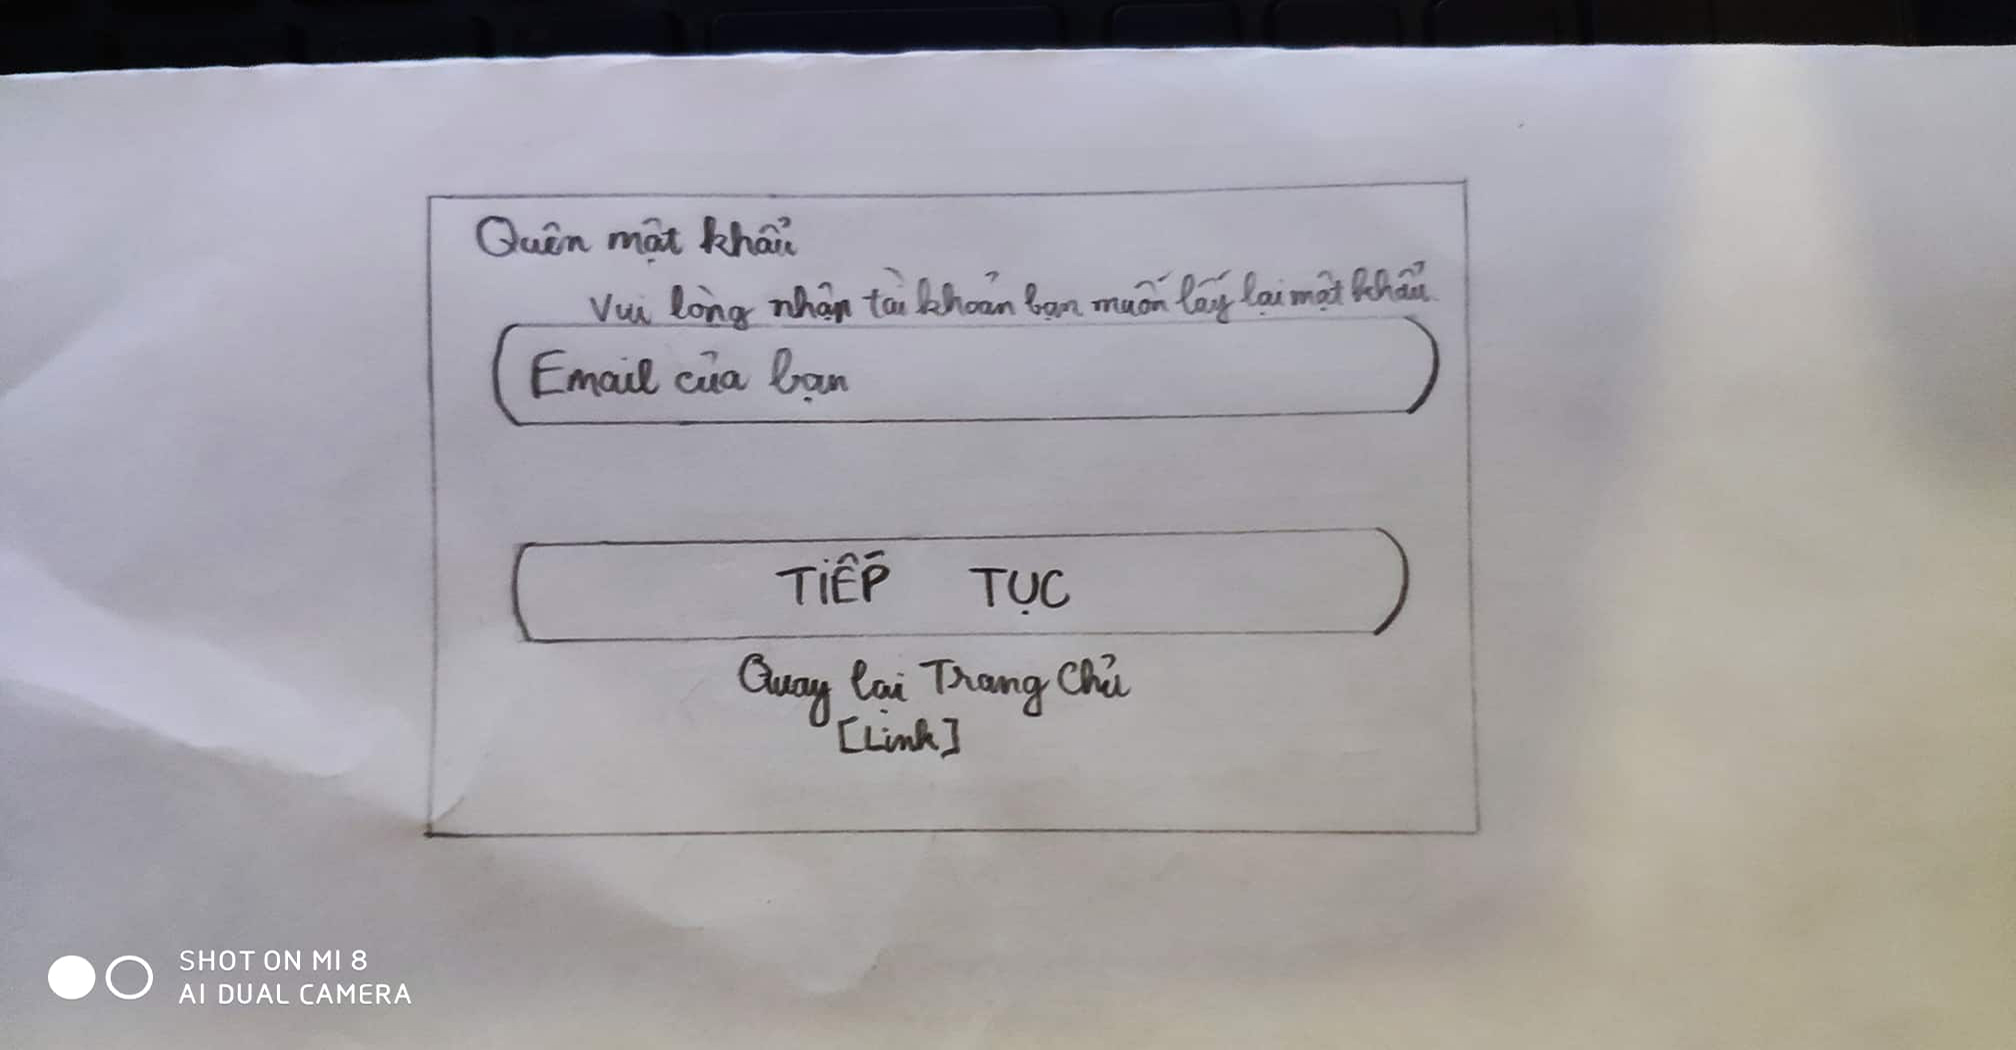 Quên mật khẩu
Vui lòng nhận tài khoản bạn muốn lấy lại mật khẩu
Email của bạn
TIẾP TỤC
Quay lại Trang Chủ
[Link]
SHOT ON MI 8
AI DUAL CAMERA